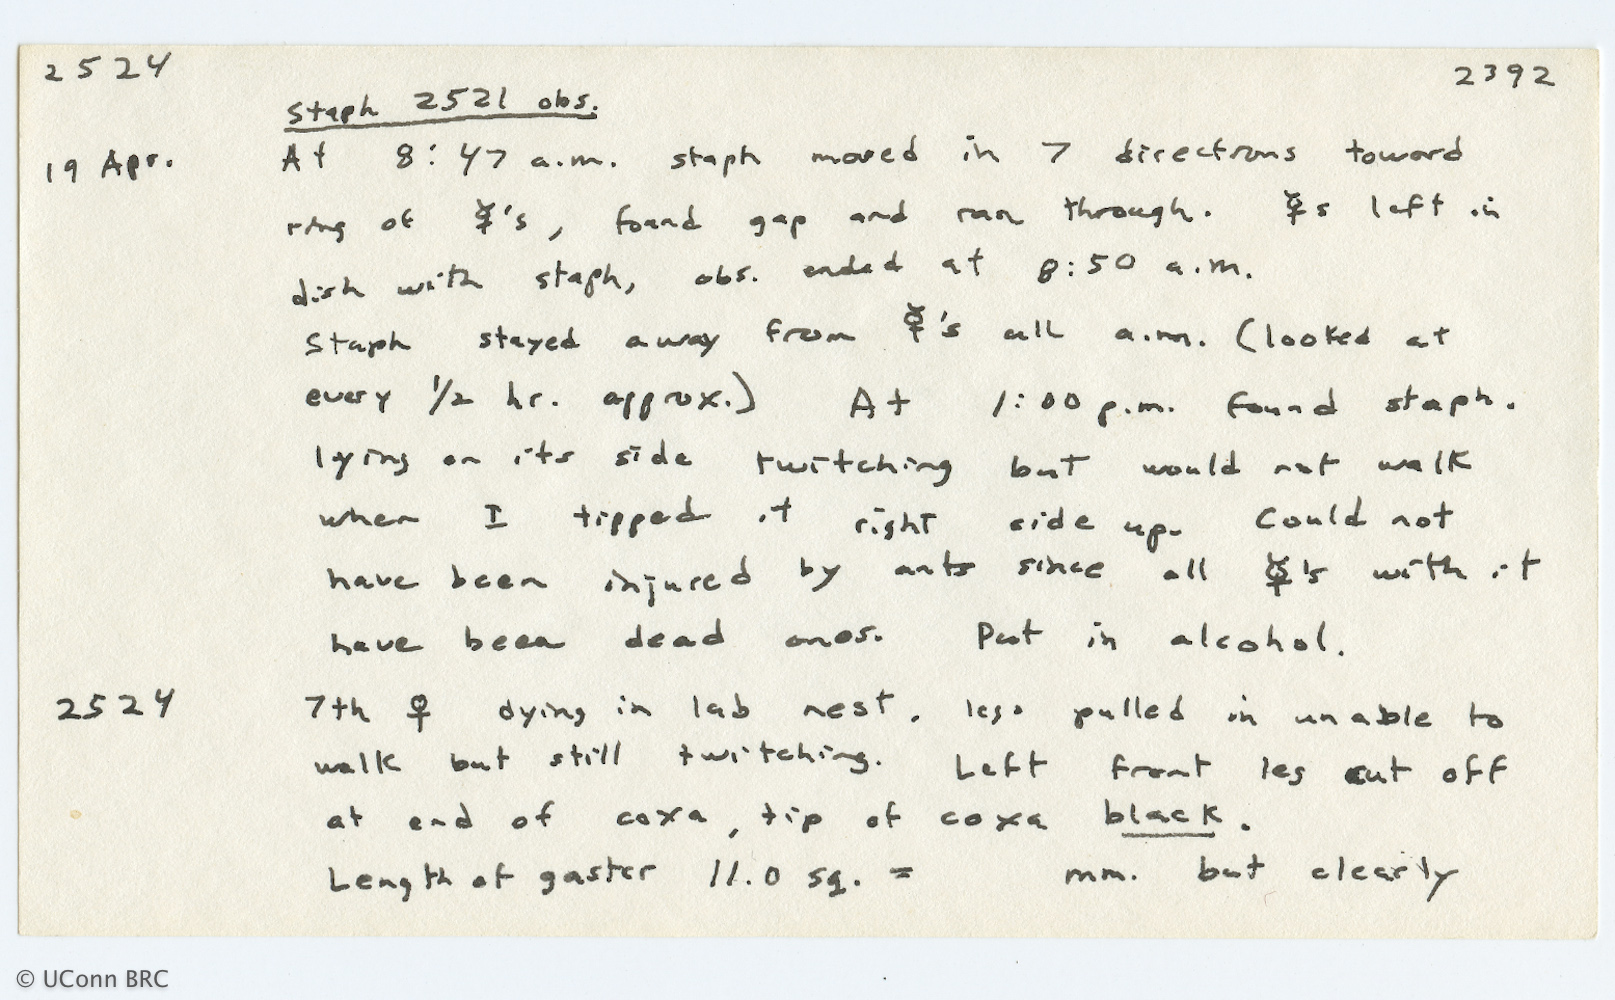 2524
2392
Staph 2521 obs.
19 Apr. At 8:47 a.m. staph moved in 7 directions toward
ring of ☿'s, found gap and ran through. ☿s left in
dish with staph, obs. ended at 8:50 a.m.
Staph stayed away from ☿'s all a.m. (looked at
every 1/2 hr. approx.) At 1:00 p.m. found staph.
lying on its side twitching but would not walk
when I tipped it right side up. Could not
have been injured by ants since all ☿'s with it
have been dead ones. Put in alcohol.
2524 7th ♀ dying in lab nest. legs pulled in unable to
walk but still twitching. Left front leg cut off
at end of coxa, tip of coxa black.
Length of gaster 11.0 sq. = mm. but clearly
© UConn BRC